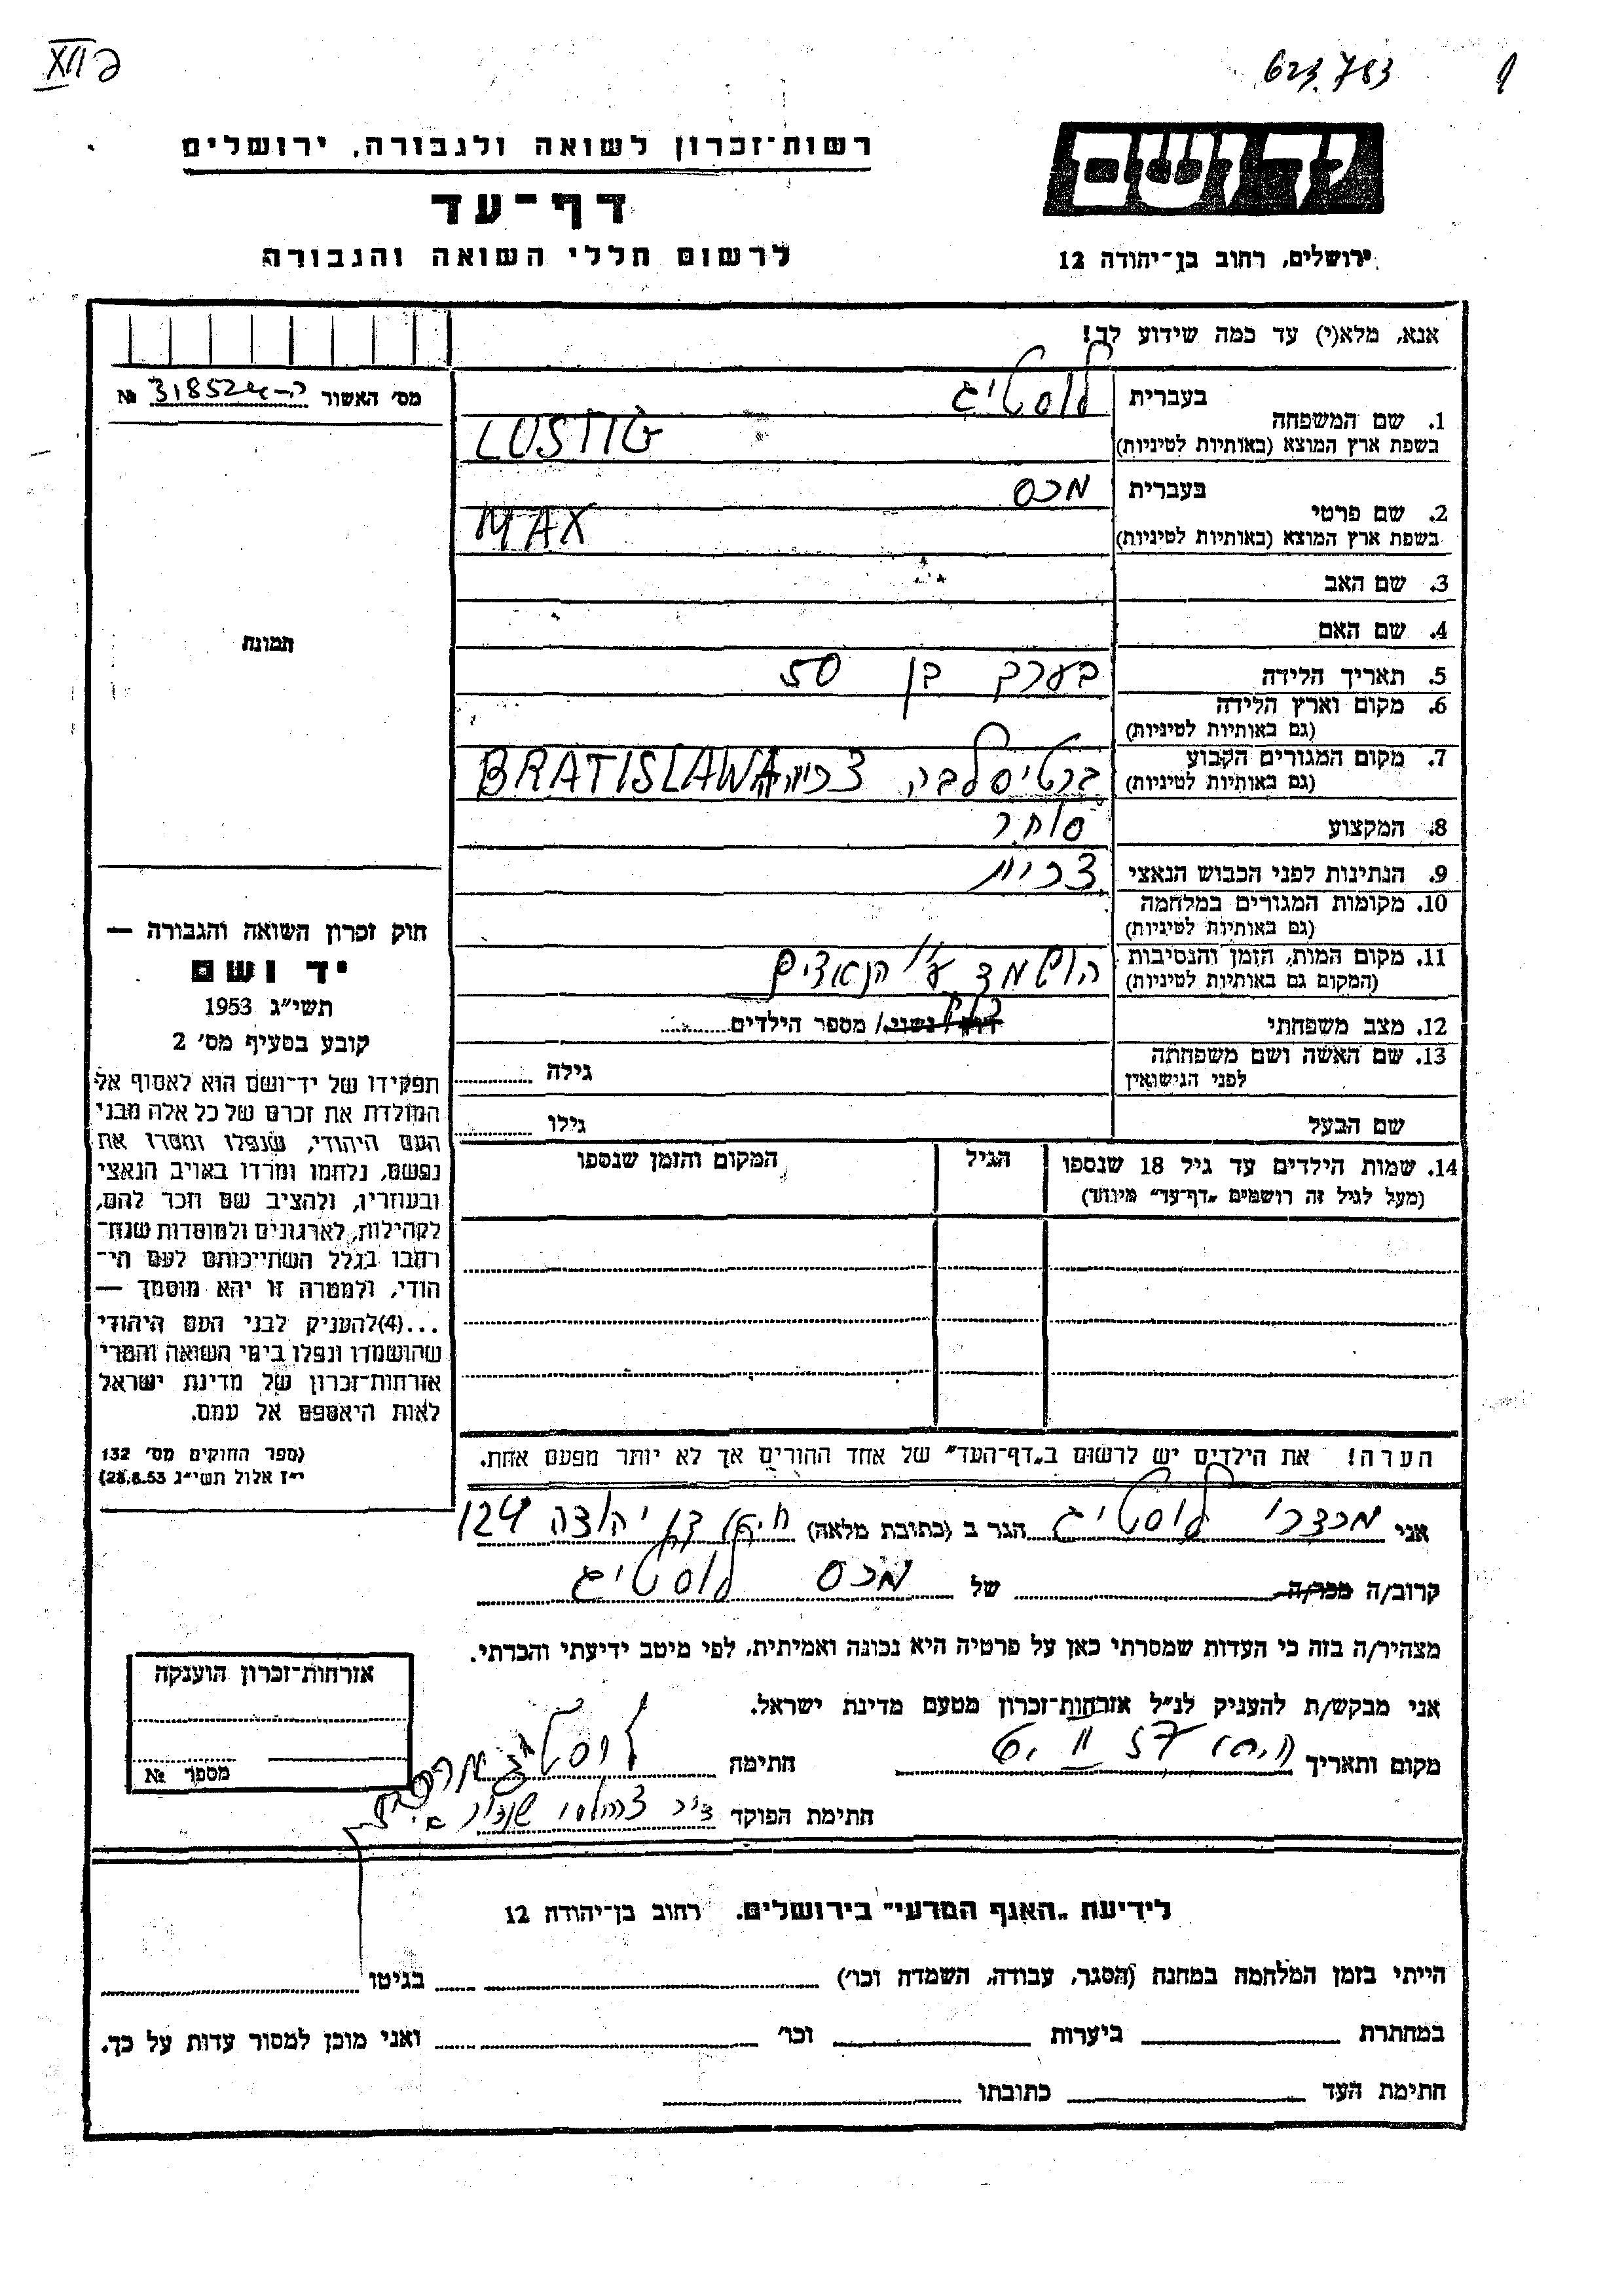 XII
623.783
יד ושם
ירושלים, רחוב בן־יהודה 12
רשות־זכרון לשואה ולגבורה, ירושלים
דף־עד
לרשום חללי השואה והגבורה
אנא, מלא(י) עד כמה שידוע לך!
מס׳ האשור № 318524
1. שם המשפחה
בעברית לוסטיג
בשפת ארץ המוצא (באותיות לטיניות) LUSTIG
2. שם פרטי
בעברית מכס
בשפת ארץ המוצא (באותיות לטיניות) MAX
3. שם האב
4. שם האם
5. תאריך הלידה בערך בן 50
6. מקום וארץ הלידה
(גם באותיות לטיניות)
7. מקום המגורים הקבוע ברטיסלבה BRATISLAWA
(גם באותיות לטיניות)
8. המקצוע סוחר
9. הנתינות לפני הכבוש הנאצי צכית
10. מקומות המגורים במלחמה
(גם באותיות לטיניות)
11. מקום המות, הזמן והנסיבות הושמד ע״י הנאצים
(המקום גם באותיות לטיניות)
12. מצב משפחתי רווק / נשוי / מספר הילדים
13. שם האשה ושם משפחתה
לפני הנישואין גילה
שם הבעל גילו
14. שמות הילדים עד גיל 18 שנספו הגיל המקום והזמן שנספו
(מעל לגיל זה רושמים „דף־עד״ מיוחד)
הערה! את הילדים יש לרשום ב„דף־העד״ של אחד ההורים אך לא יותר מפעם אחת.
תמונה
חוק זכרון השואה והגבורה —
יד ושם
תשי״ג 1953
קובע בסעיף מס׳ 2
תפקידו של יד־ושם הוא לאסוף אל
המולדת את זכרם של כל אלה מבני
העם היהודי, שנפלו ומסרו את
נפשם, נלחמו ומרדו באויב הנאצי
ובעוזריו, ולהציב שם וזכר להם,
לקהילות, לארגונים ולמוסדות שנח־
רבו בגלל השתייכותם לעם הי־
הודי, ולמטרה זו יהא מוסמך —
...(4)להעניק לבני העם היהודי
שהושמדו ונפלו בימי השואה והמרי
אזרחות־זכרון של מדינת ישראל
לאות היאספם אל עמם.
(ספר החוקים מס׳ 132
י״ז אלול תשי״ג 28.8.53)
אני מרדכי לוסטיג הגר ב (כתובת מלאה) חיפה בן יהודה 124
קרוב/ה מכר/ה של מכס לוסטיג
מצהיר/ה בזה כי העדות שמסרתי כאן על פרטיה היא נכונה ואמיתית, לפי מיטב ידיעתי והכרתי.
אני מבקש/ת להעניק לנ״ל אזרחות־זכרון מטעם מדינת ישראל.
מקום ותאריך חיפה חתימה לוסטיג
חתימת הפוקד
אזרחות־זכרון הוענקה
מספר №
לידיעת „האגף המדעי״ בירושלים, רחוב בן־יהודה 12
הייתי בזמן המלחמה במחנה (הסגר, עבודה, השמדה וכו׳) בגיטו
במחתרת ביערות וכו׳ ואני מוכן למסור עדות על כך.
חתימת העד כתובתו